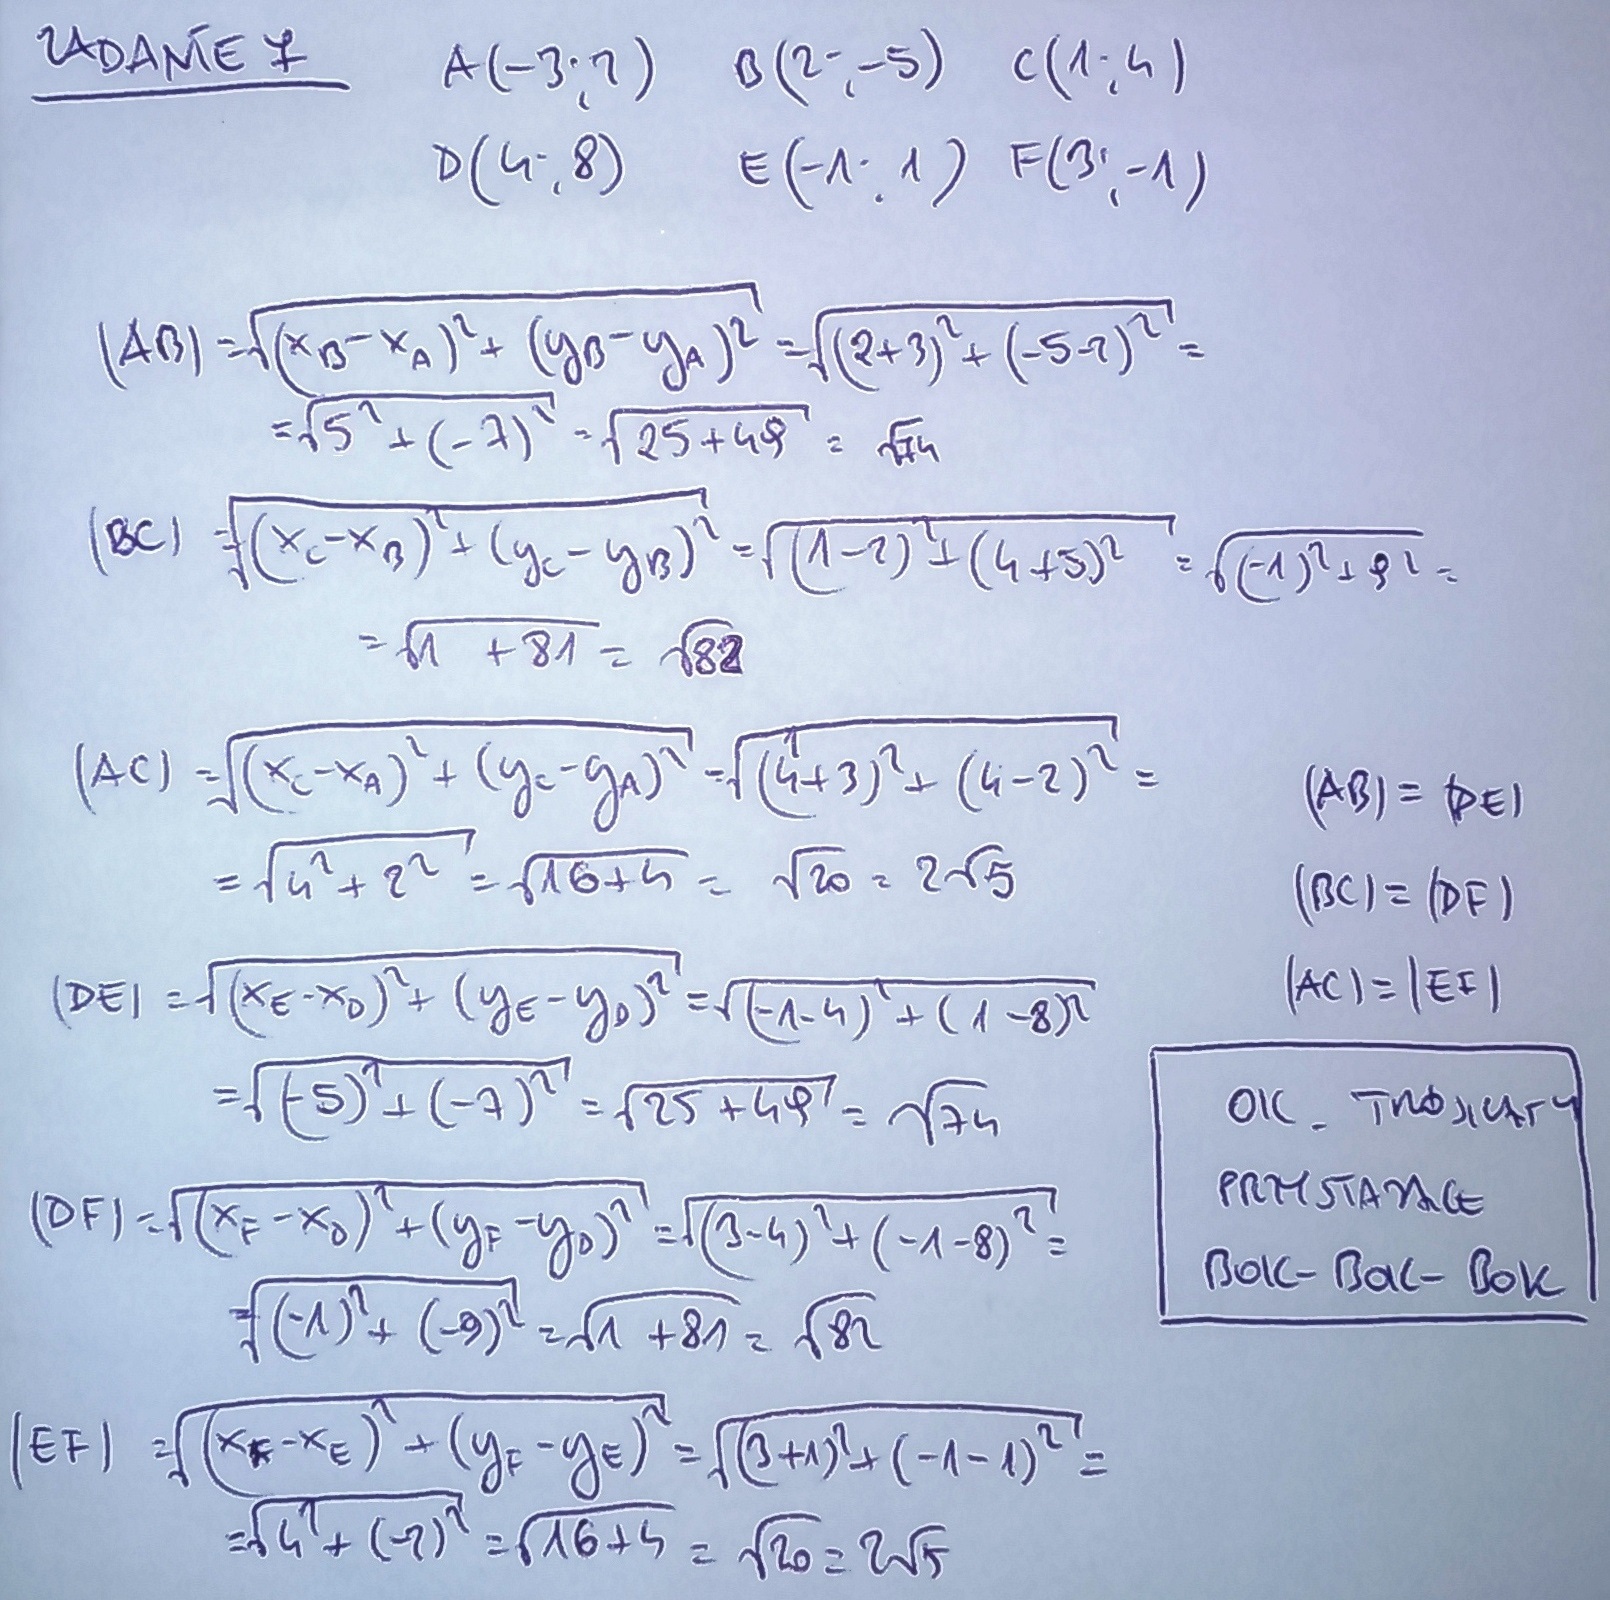 ZADANIE 7 A(-3; 2) B(2; -5) C(1; 4)
D(4; 8) E(-1; 1) F(3; -1)
|AB| = √((x_B - x_A)² + (y_B - y_A)²) = √((2+3)² + (-5-2)²) =
= √(5² + (-7)²) = √(25+49) = √74
|BC| = √((x_C - x_B)² + (y_C - y_B)²) = √((1-2)² + (4+5)²) = √((-1)² + 9²) =
= √(1 + 81) = √82
|AC| = √((x_C - x_A)² + (y_C - y_A)²) = √((1+3)² + (4-2)²) =
= √(4² + 2²) = √(16+4) = √20 = 2√5
|AB| = |DE|
|BC| = |DF|
|AC| = |EF|
|DE| = √((x_E - x_D)² + (y_E - y_D)²) = √((-1-4)² + (1-8)²)
= √((-5)² + (-7)²) = √(25+49) = √74
|DF| = √((x_F - x_D)² + (y_F - y_D)²) = √((3-4)² + (-1-8)²) =
= √((-1)² + (-9)²) = √(1 + 81) = √82
|EF| = √((x_F - x_E)² + (y_F - y_E)²) = √((3+1)² + (-1-1)²) =
= √(4² + (-2)²) = √(16+4) = √20 = 2√5
OK - TRÓJKĄTY
PRZYSTAJĄCE
BOK - BOK - BOK